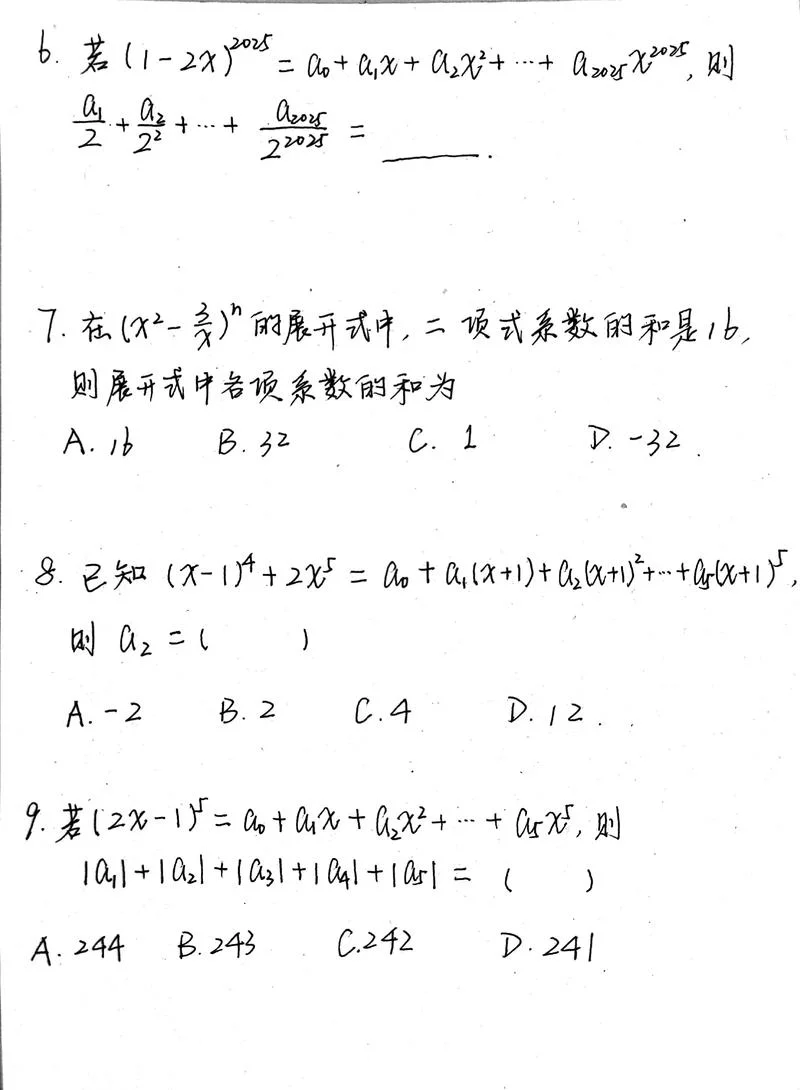 6. 若(1-2x)^2025 = a₀+a₁x+a₂x²+…+ a₂₀₂₅x^2025, 则
a₁/2 + a₂/2² + … + a₂₀₂₅/2^2025 = ______.
7. 在(x²-3/x)^n的展开式中, 二项式系数的和是16,
则展开式中各项系数的和为
A. 16 B. 32 C. 1 D. -32.
8. 已知 (x-1)⁴+2x⁵ = a₀+a₁(x+1)+a₂(x+1)²+…+a₅(x+1)⁵,
则 a₂ = ( )
A. -2 B. 2 C. 4 D. 12.
9. 若(2x-1)⁵ = a₀+a₁x+a₂x²+…+a₅x⁵, 则
|a₁|+|a₂|+|a₃|+|a₄|+|a₅| = ( )
A. 244 B. 243 C. 242 D. 241